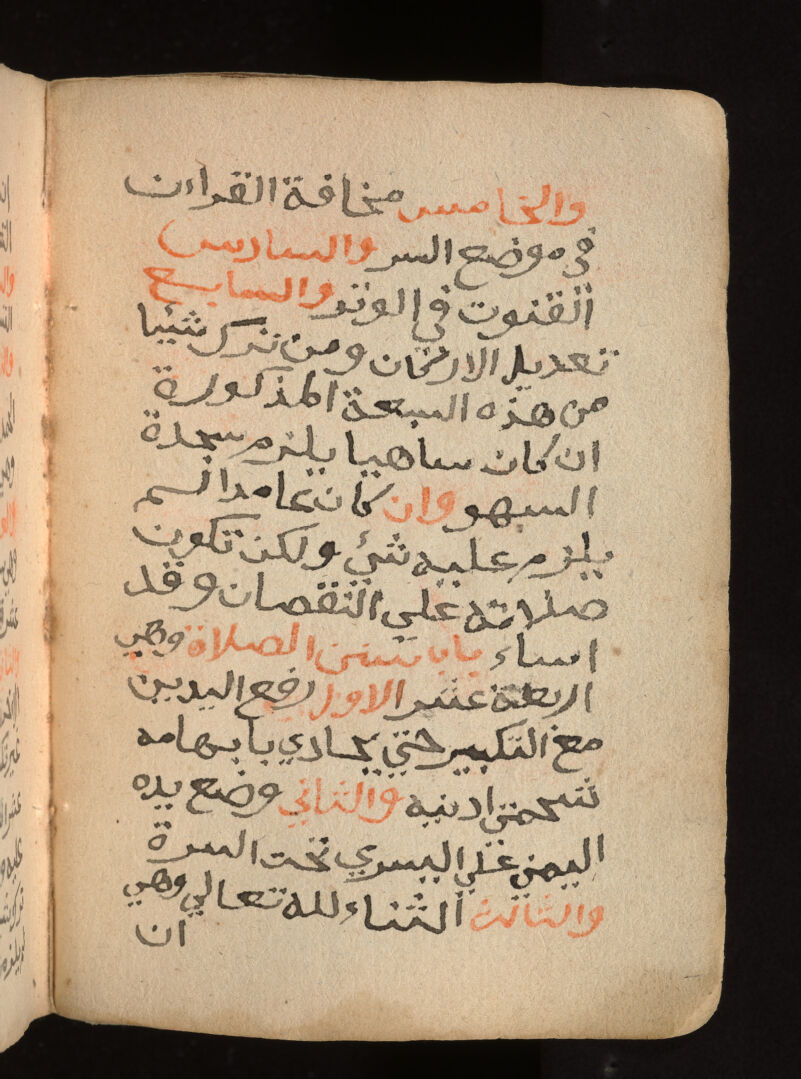 والخامس مخافة القراءن
في موضع السر والسادس
القنوت في الوتر والسابع
تعديل الاركان ومن ترك شئيا
من هذه السبعة المذكورة
ان كان ساهيا يلزم سجدة
السهو وان كان عامدا لم
يلزم عليه شئ ولكن تكون
صلاته علي النقصان وقد
اساء باب سنن الصلاة وهي
اربعة عشر الاول رفع اليدين
مع التكبير حتي يحادي بابهامه
شحمتي ادنيه والثاني وضع يده
اليمني علي اليسري تحت السرة
والثالث الثناء لله تعالي وهي
ان